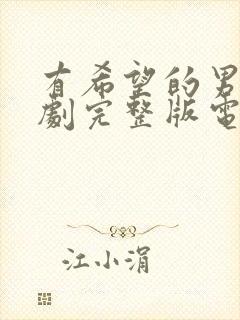 有希望的男
劇完整版電
江小涓